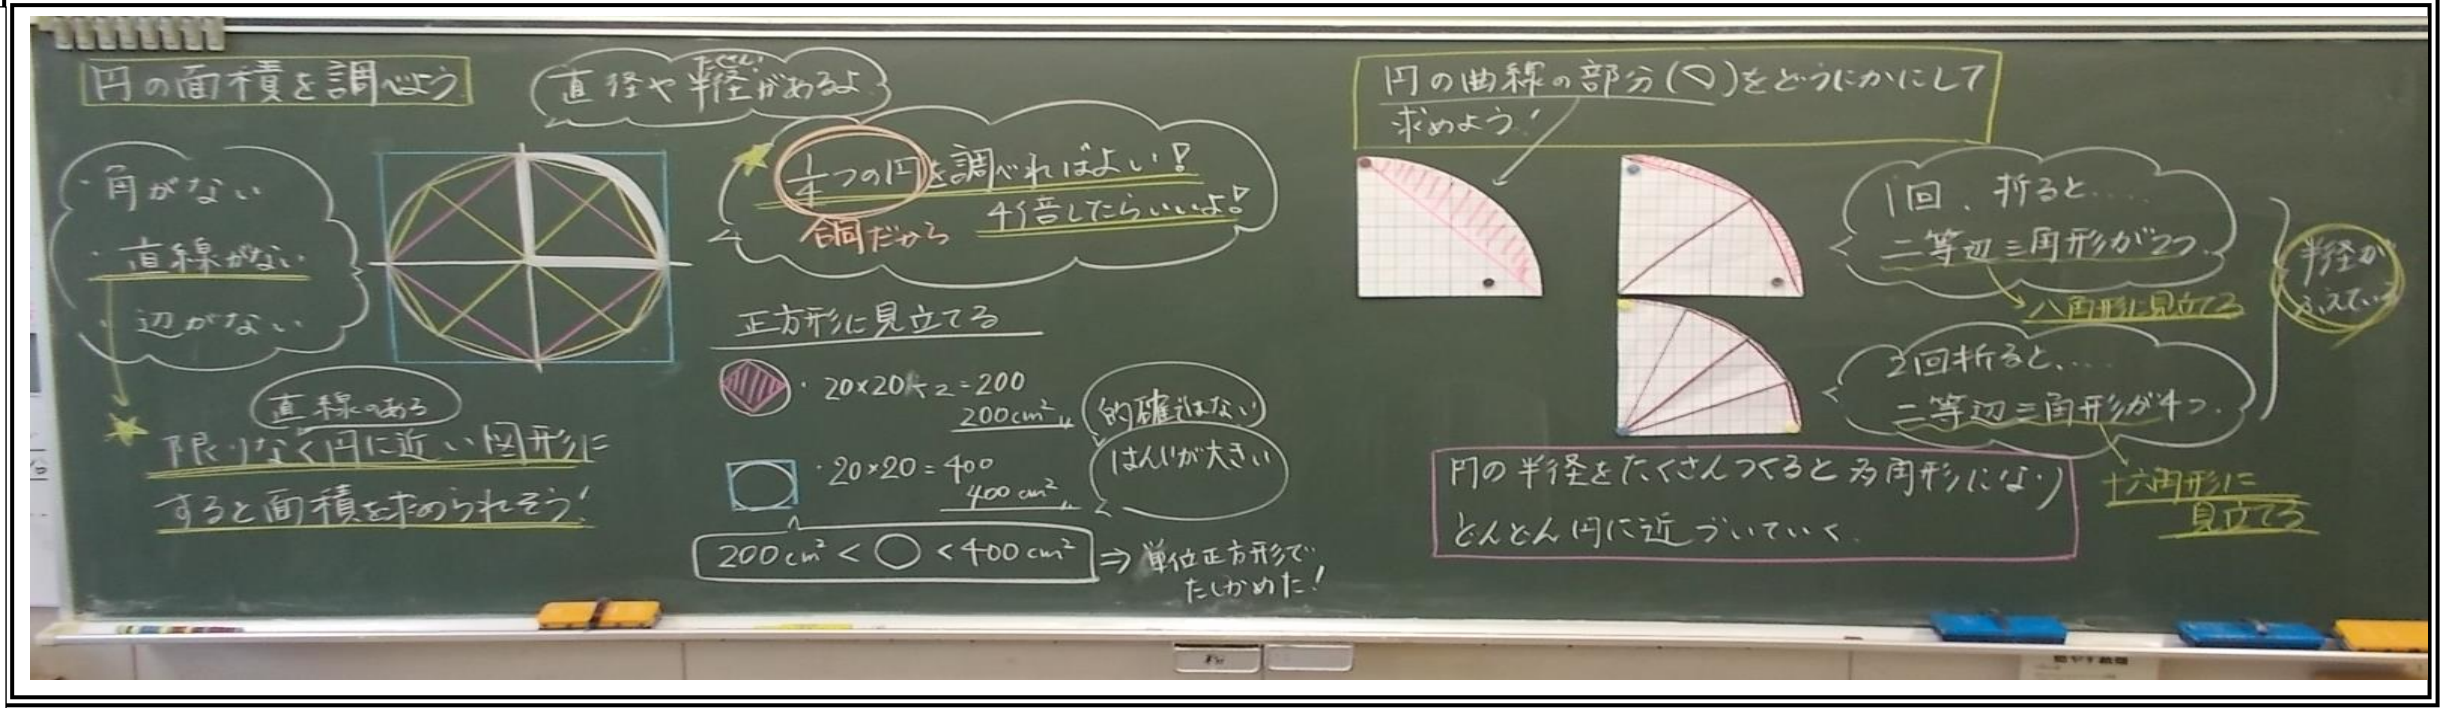 円の面積を調べよう
たくさん
直径や半径があるよ
・角がない
・直線がない
・辺がない
直線のある
限りなく円に近い図形に
すると面積を求められそう!
1/4つの円を調べればよい!
4倍したらいいよ!
合同だから
正方形に見立てる
・20×20÷2=200
200cm²
・20×20=400
400cm²
的確ではない
はんいが大きい
200cm²<○<400cm²
⇒単位正方形で
たしかめた!
円の曲線の部分( )をどうにかにして
求めよう!
1回、折ると....
二等辺三角形が2つ.
八角形に見立てる
2回折ると、....
二等辺三角形が4つ.
十六角形に
見立てる
半径が
ふえている
円の半径をたくさんつくると多角形になり
どんどん円に近づいていく.